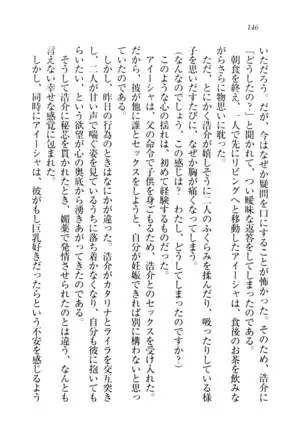 146
いただろう。だが、今はなぜか疑問を口にすることが怖かった。そのため、浩介に
「どうしたの？」と聞かれて、つい曖昧な返答をしてしまったのである。
朝食を終え、一人で先にリビングへと移動したアイーシャは、食後のお茶を飲みな
がらさらに物思いに耽った。
（なんなのでしょう、この感じは？　わたし、どうしてしまったのですか？）
さっき、とにかく浩介が嬉しそうに二人のふくらみを揉んだり、吸ったりしている様
子を思いだすたびに、なぜか胸が痛くなってしまう。
このような心の揺れは、初めて経験するものだった。
アイーシャは、父の命令で子供を身ごもるため、浩介とのセックスを受け入れた。
だから、彼が他に誰とセックスをしようと、自分が妊娠できれば別に構わないと思っ
ていたのである。
しかし、昨日の行為のときはなにかが違った。浩介がカタリナとライラを交互突き
し、二人が甘い声で喘ぐ姿を見ているうちに落ち着かなくなり、自分も彼に抱いても
らいたい、という欲望が心の奥底から湧きあがってきてしまったのである。
そうして浩介に秘芯を貫かれたとき、媚薬で発情させられたのとは違う、なんとも
言えない幸せな感覚に包まれた。
しかし、同時にアイーシャは、彼がもし巨乳好きだったらという不安を感じるよう